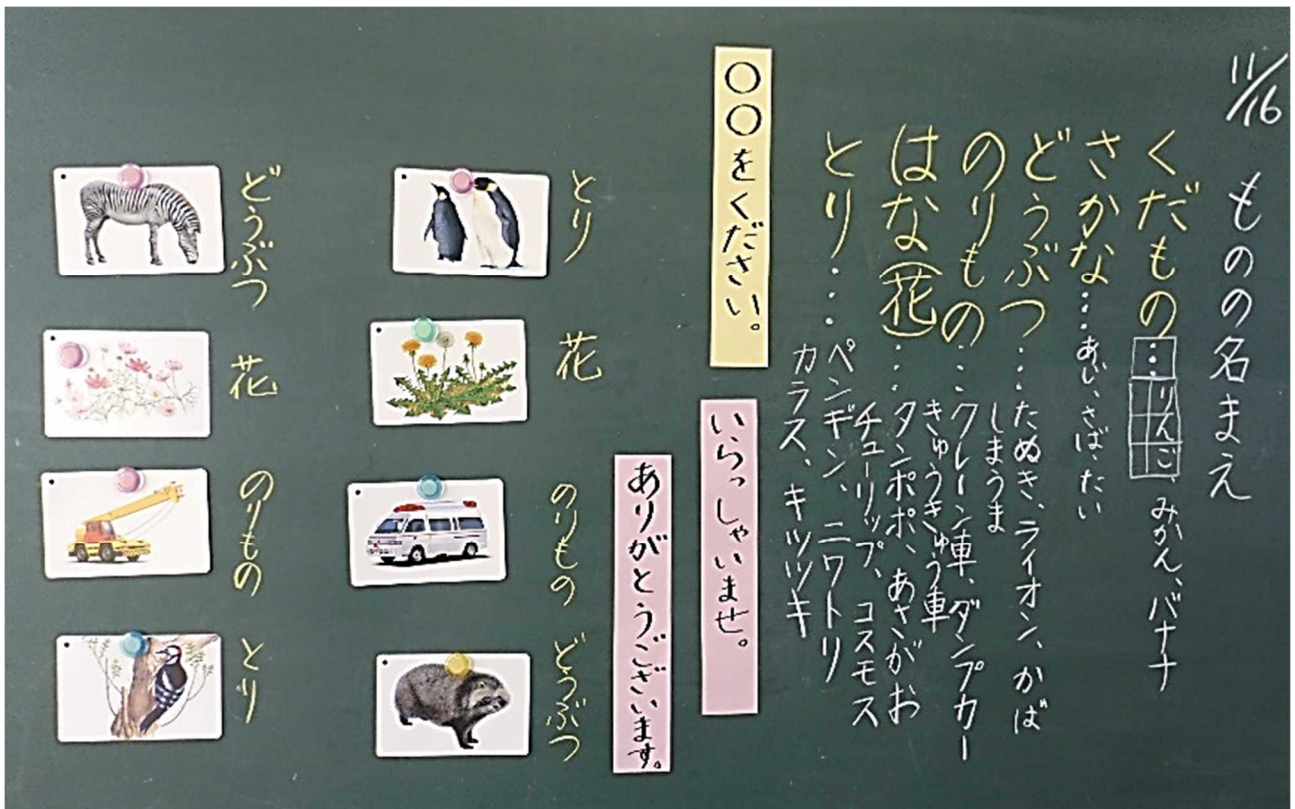 11/16
ものの名まえ
くだもの…りんご、みかん、バナナ
さかな…あじ、さば、たい
どうぶつ…たぬき、ライオン、かば
しまうま
のりもの…クレーン車、ダンプカー
きゅうきゅう車
はな(花)…タンポポ、あさがお
チューリップ、コスモス
とり…ペンギン、ニワトリ
カラス、キツツキ
○○をください。
いらっしゃいませ。
ありがとうございます。
とり
花
のりもの
どうぶつ
どうぶつ
花
のりもの
とり